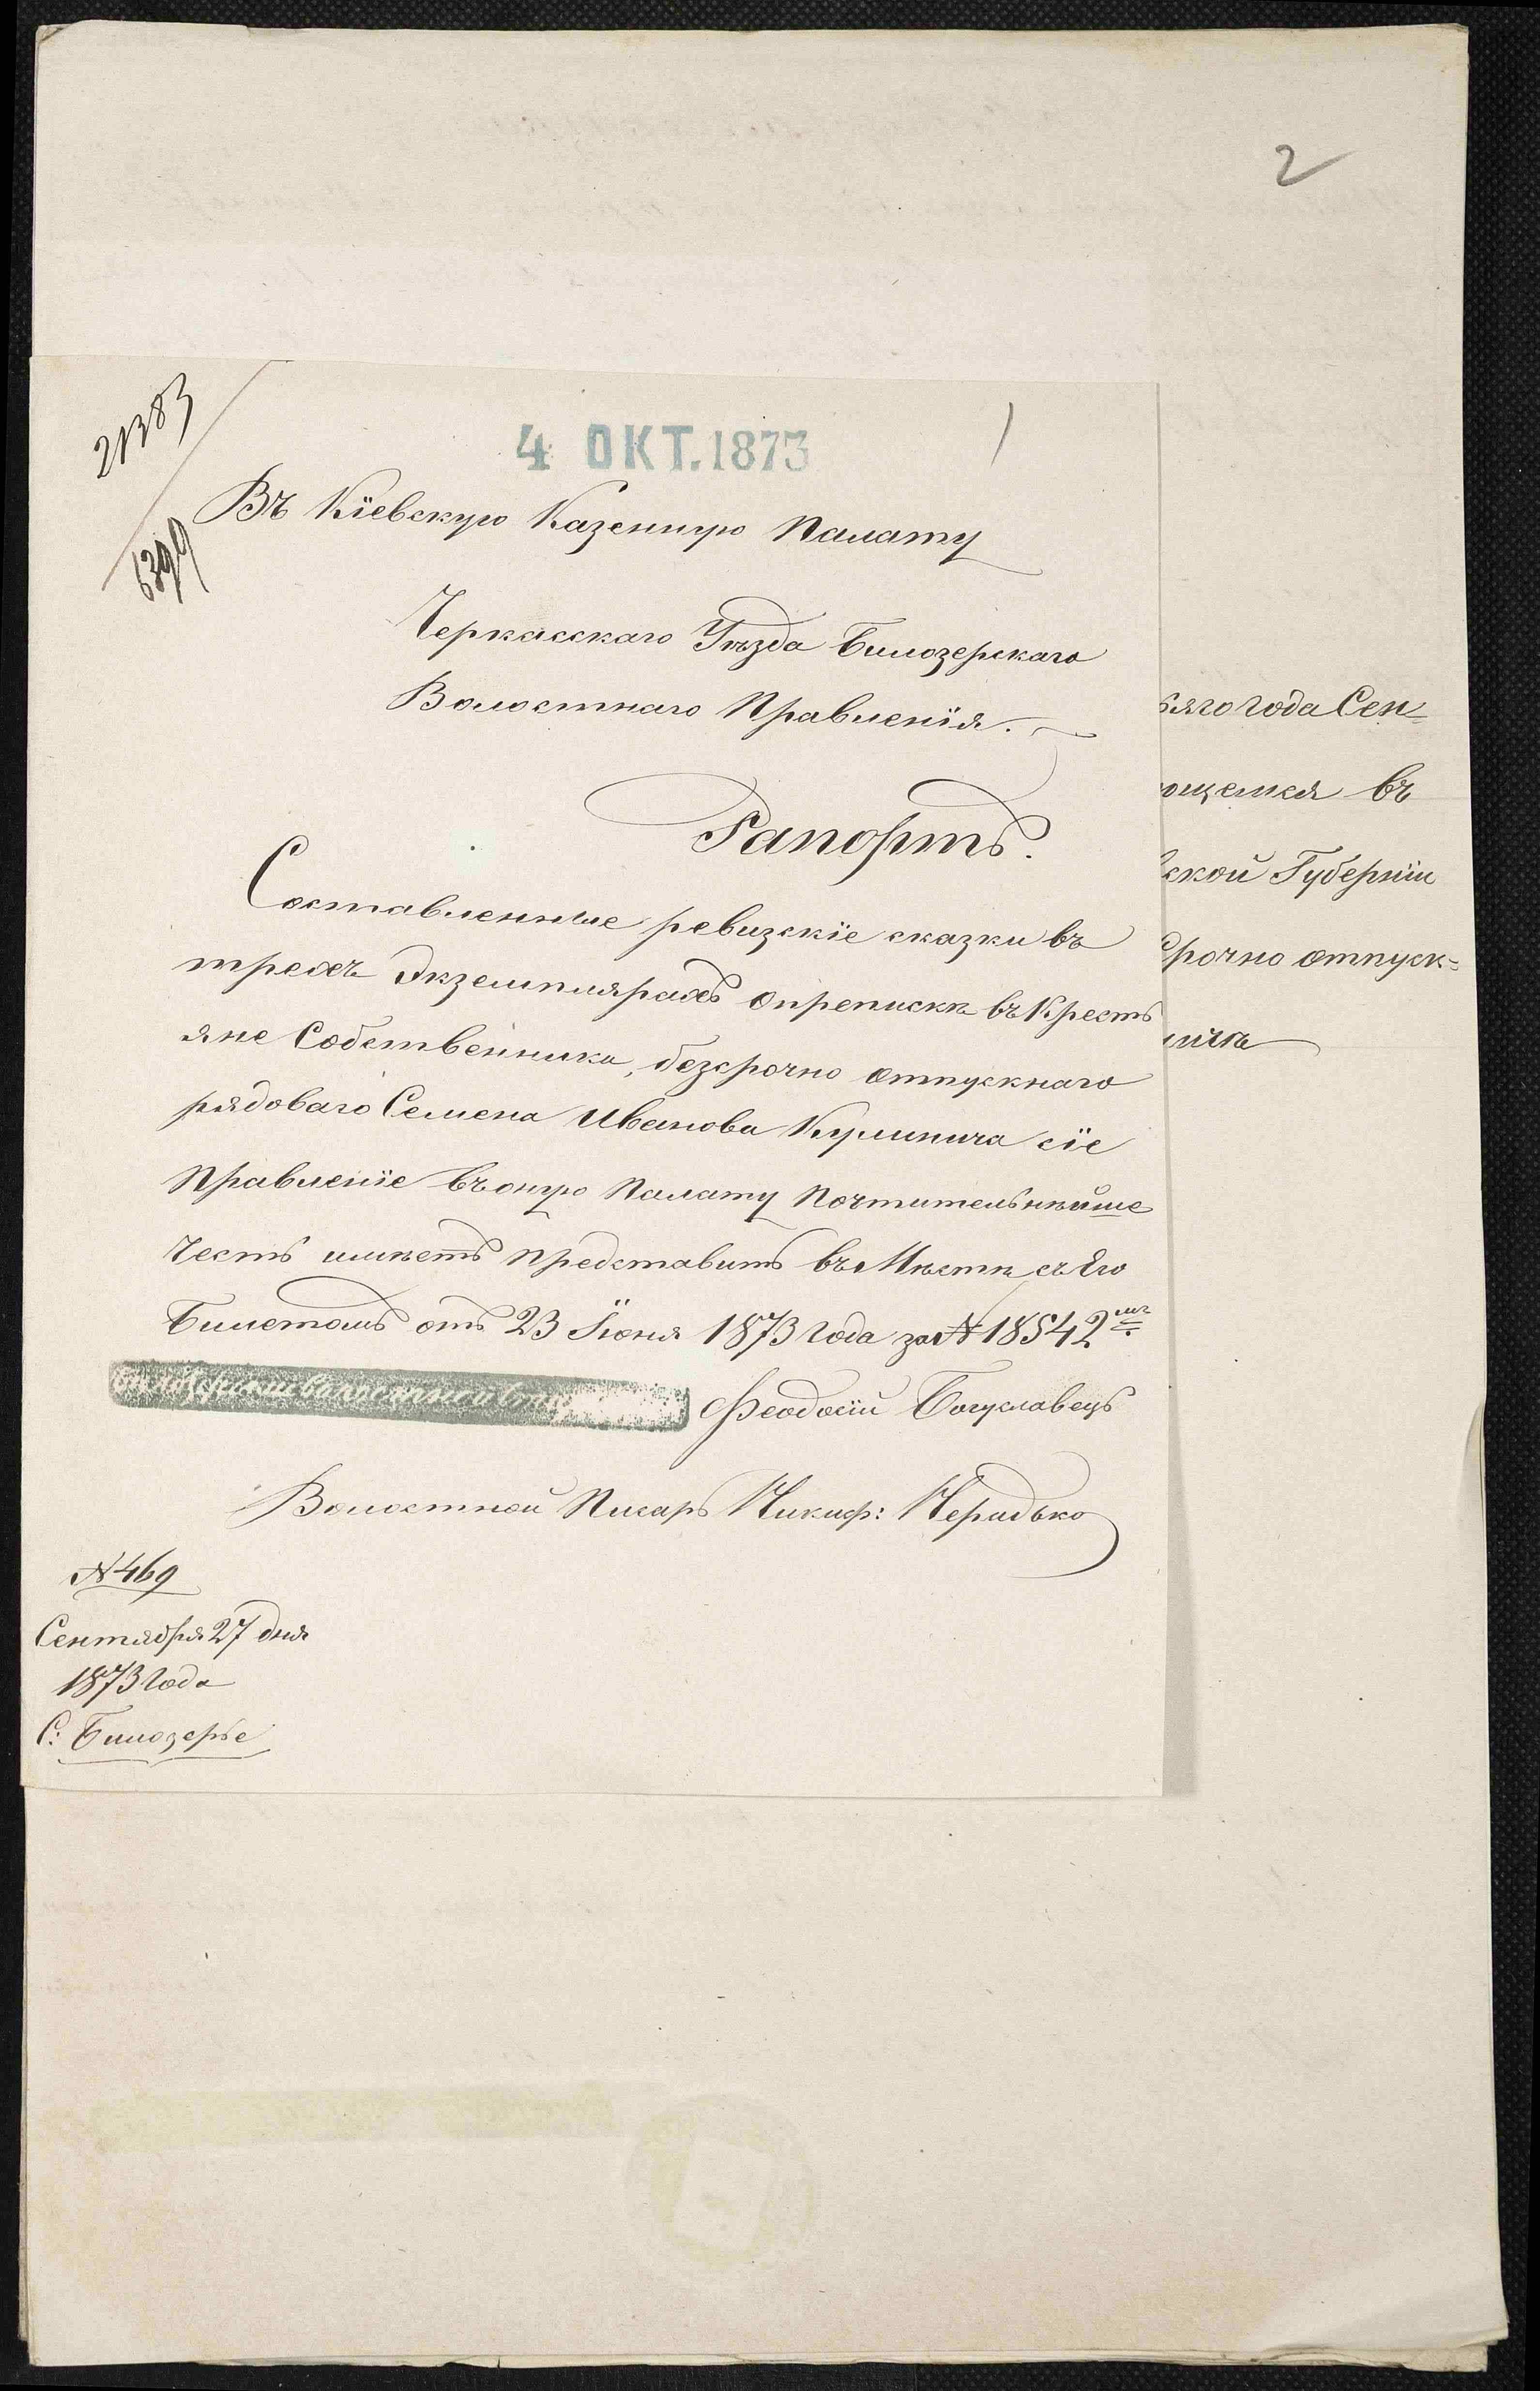 2
21383
6399
4 ОКТ. 1873
1
Въ Кіевскую Казенную Палату
Черкасскаго Уѣзда Билозерскаго
Волостнаго Правленія.
Рапортъ.
Составленные ревизскіе сказки въ
трехъ Экземплярахъ опреписке въ Кресть
яне Собственника, безсрочно отпускнаго
рядоваго Семена Иванова сіе
Правленіе въ оную Палату Почтительнѣйше
Честь имѣетъ представить въ Мѣсте съ Его
Билетомъ отъ 23 Іюня 1873 года за № 18542мъ.
Феодосій Богуславецъ
Волостной Писарь Никиф:
№ 469
Сентября 27 дня
1873 года
С: Билозерье
яго года Сен=
ющемся въ
ской Губерніи
срочно отпуск=